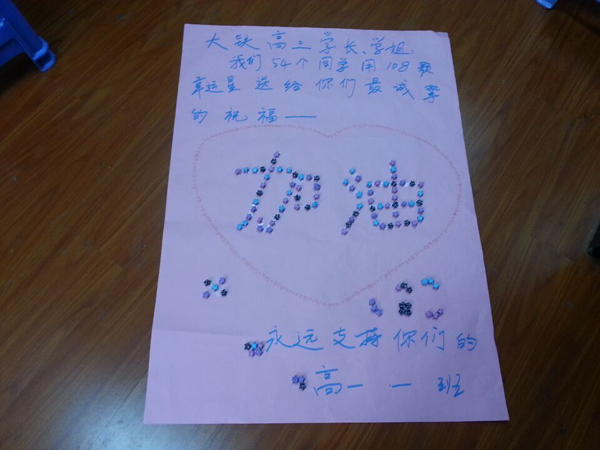 大铁高三学长、学姐:
我们54个同学用108颗
幸运星送给你们最诚挚
的祝福——
加油
永远支持你们的
高一一班